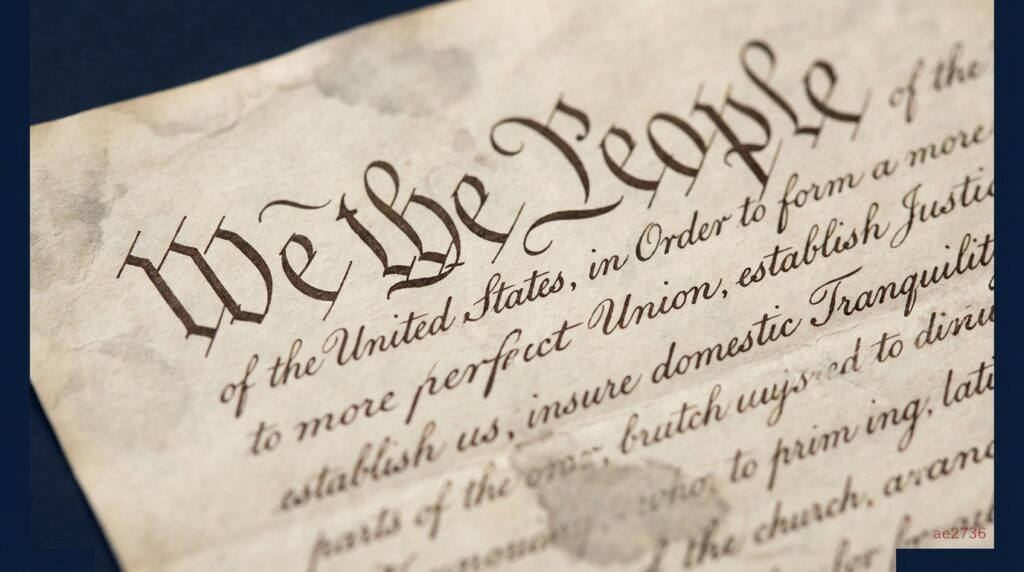 We the People of the
of the United States, in Order to form a more
to more perfect Union, establish Justic
establish us, insure domestic Tranquilit
parts of the brutch to
who, to prim ing, lati
the church,
ae2736